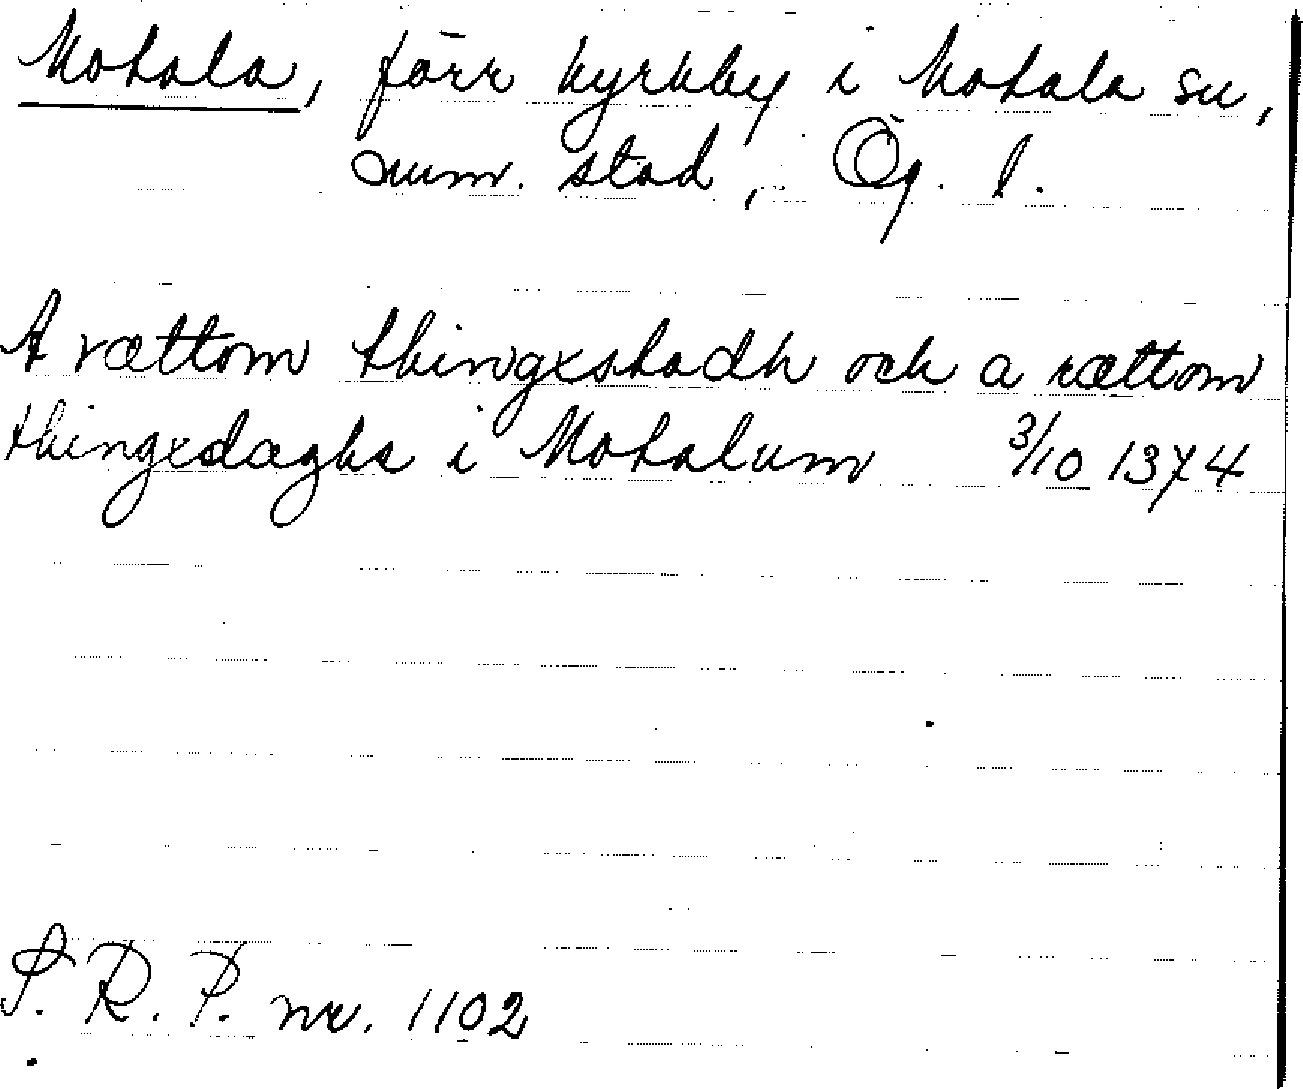 Motala, förr kyrkby i Motala sn,
num. stad, Ög. l.
A rættom thingxstadh och a rættom
thingxdaghs i Motalum 3/10 1374
S. R. P. nr. 1102